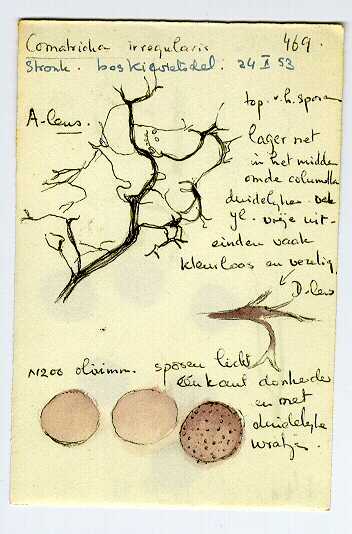 Comatricha irregularis 469.
Stronk. boskikvietsdel. 24 I 53
top. v.h. sporan
A-lens.
lager net
in het midden
om de columella
duidelyker. Ook
yl. vrije uit-
einden vaak
kleurloos en
D-lens
N200 olieimm. sporen licht
één kant donkerder
en met
duidelyke
wratjes.